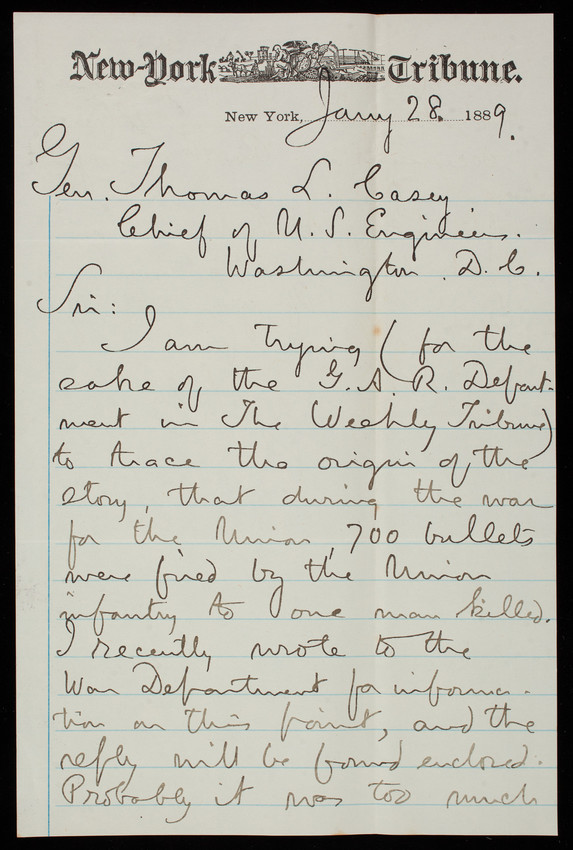 New-York Tribune.
New York, Jany 28. 1889.
Gen. Thomas L. Casey
Chief of U. S. Engineers.
Washington. D. C.
Sir:
I am trying (for the
sake of the G. A. R. Depart-
ment in The Weekly Tribune)
to trace the origin of the
story, that during the war
for the Union, 700 bullets
were fired by the Union
infantry to one man killed.
I recently wrote to the
War Department for informa-
tion on this point, and the
reply will be found enclosed.
Probably it was too much